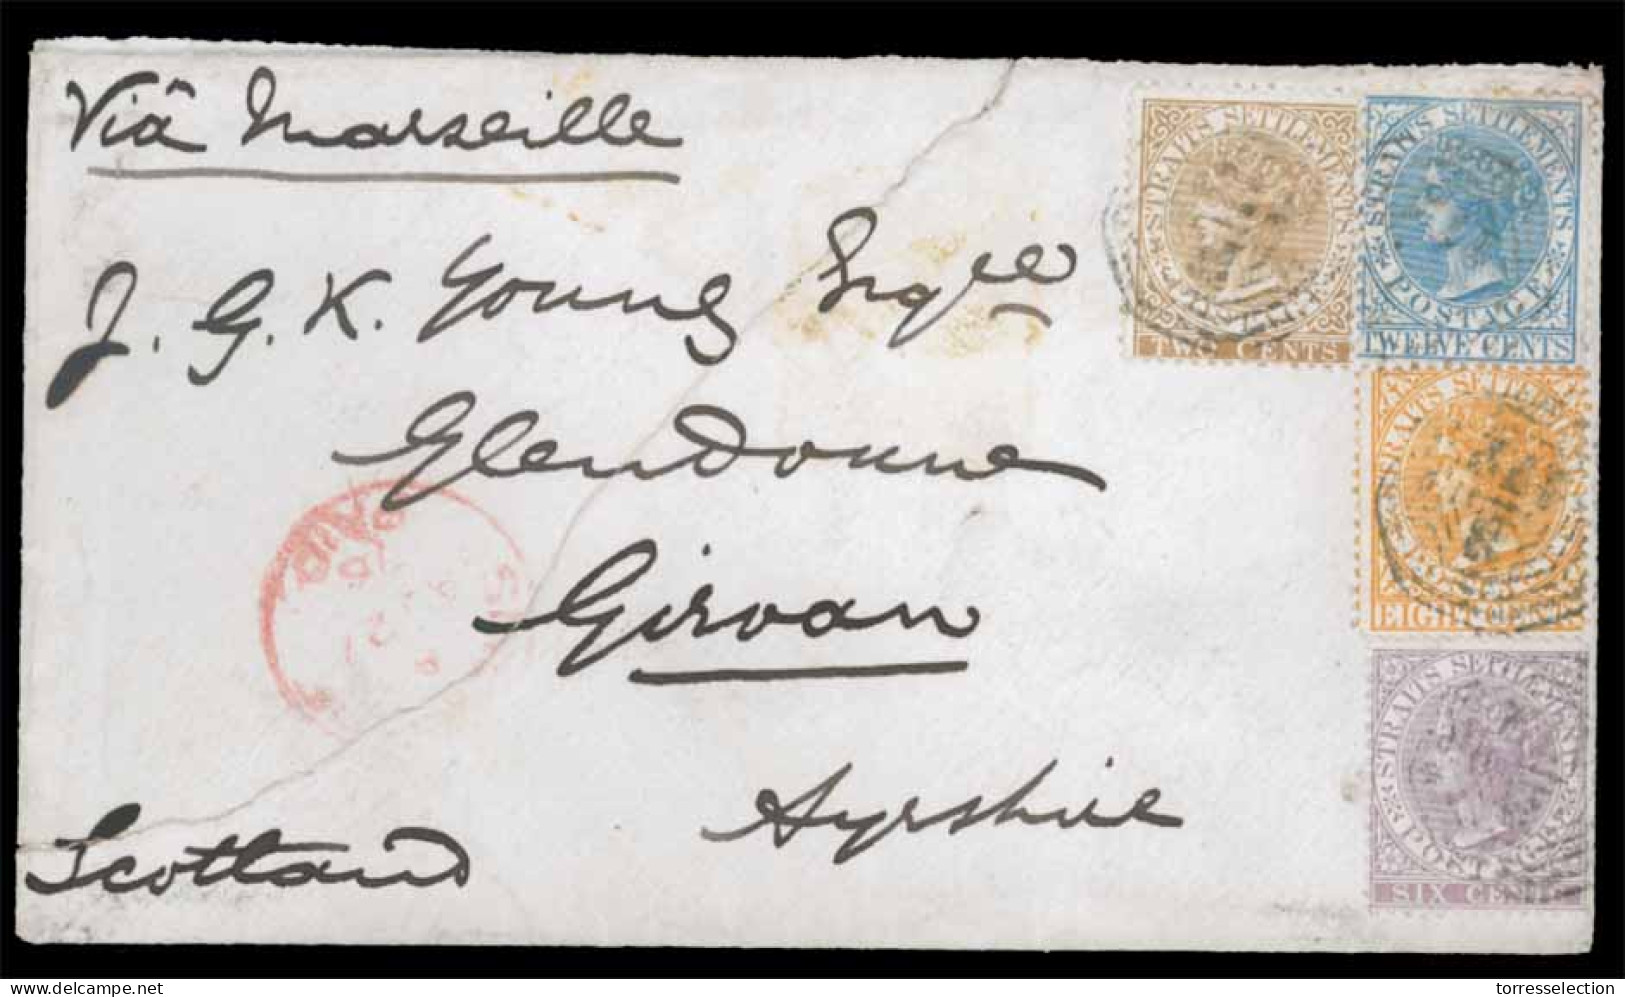 Viâ Marseille
STRAITS SETTLEMENTS
TWO CENTS
STRAITS SETTLEMENTS
POSTAGE
TWELVE CENTS
J. G. K. Young Esqre
STRAITS SETTLEMENTS
EIGHT CENTS
Glendoune
PAID
Girvan
STRAITS SETTLEMENTS
POSTAGE
SIX CENTS
Ayrshire
Scotland
delcampe.net
torresselection